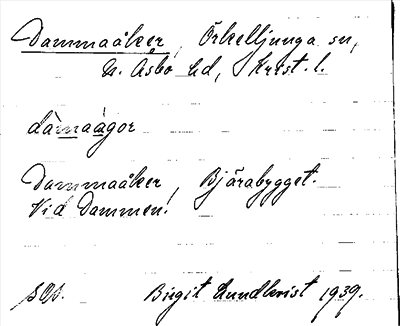 Dammaåker, Örkelljunga sn,
N. Åsbo hd, Krist. l.
dàmaågor
Dammaåker, Bjärabygget.
Vid Dammen!
Birgit Lundkvist 1939.